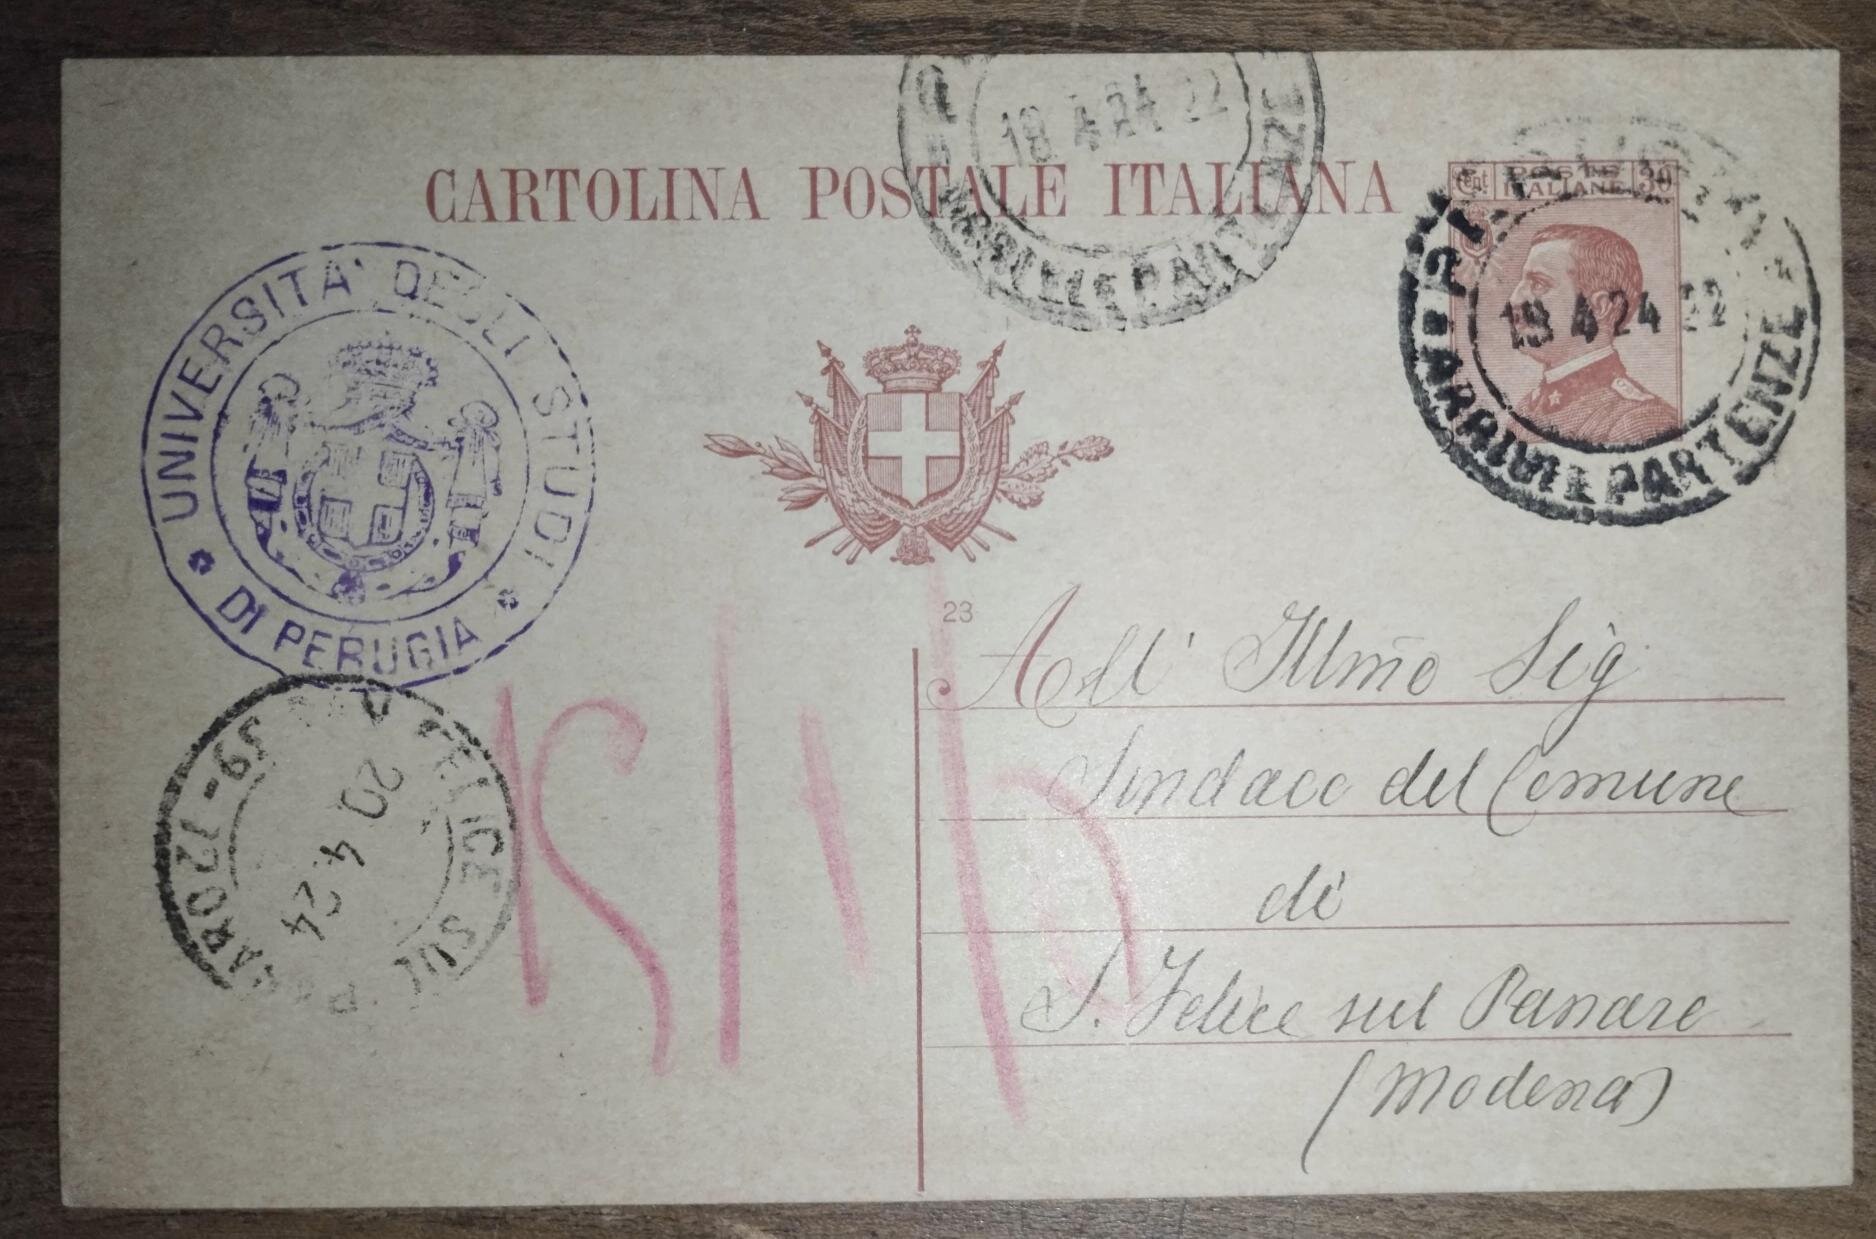 18 4 24 22
ARRIVI E PARTENZE
CARTOLINA POSTALE ITALIANA
Cent POSTE ITALIANE 30
19 4 24 22
ARRIVI E PARTENZE
UNIVERSITA' DEGLI STUDI
DI PERUGIA
23
All' Illmo Sig
Sindaco del Comune
di
S. Felice sul Panaro
(Modena)
FELICE SUL
20 4 24